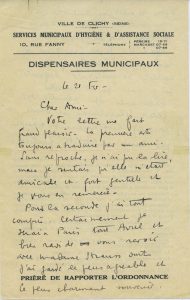 VILLE DE CLICHY (SEINE)
SERVICES MUNICIPAUX D'HYGIÈNE & D'ASSISTANCE SOCIALE
10, RUE FANNY
DISPENSAIRES MUNICIPAUX
Le 21 Fev -
Cher Ami -
Votre lettre me fait
grand plaisir. La première est
toujours à traduire par un ami.
Sans reproche, je n'ai pu la lire,
mais je sentais qu'elle était
amicale et fort gentille et
je vous en remercie.
Pour la seconde j'ai tout
compris. Certainement je
serai à Paris tout Avril et
très ravi de vous revoir
avec Madame Strauss dont
j'ai gardé le plus agréable et
PRIÈRE DE RAPPORTER L'ORDONNANCE
le plus charmant souvenir